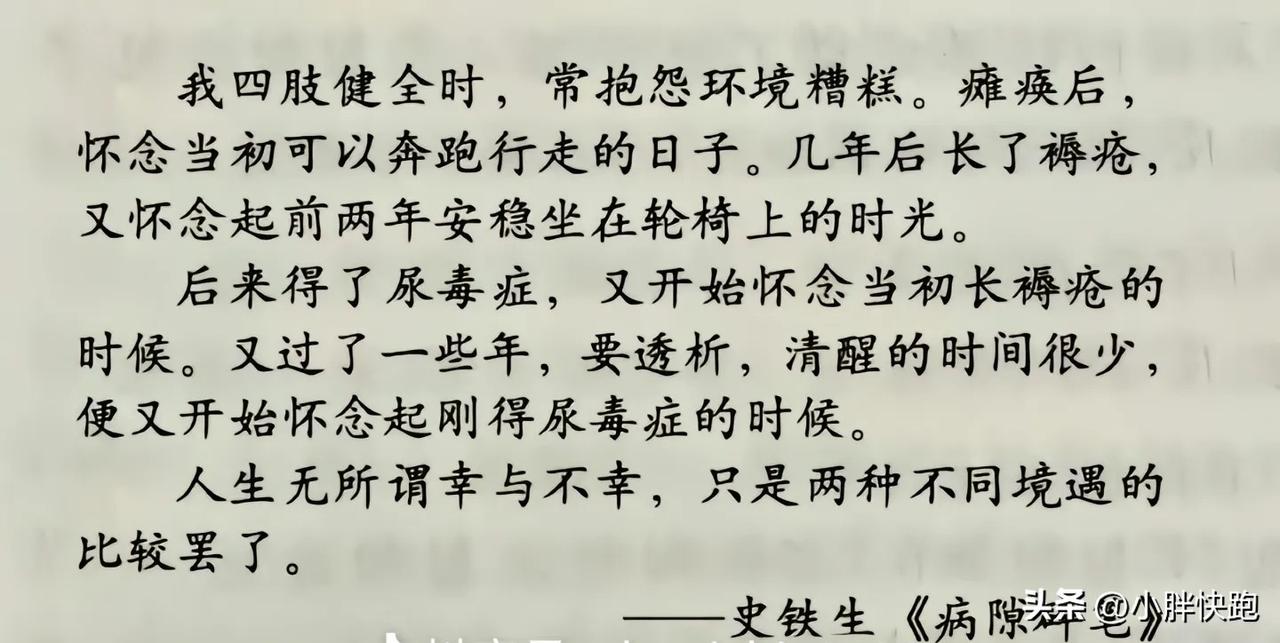 我四肢健全时，常抱怨环境糟糕。瘫痪后，
怀念当初可以奔跑行走的日子。几年后长了褥疮，
又怀念起前两年安稳坐在轮椅上的时光。
后来得了尿毒症，又开始怀念当初长褥疮的
时候。又过了一些年，要透析，清醒的时间很少，
便又开始怀念起刚得尿毒症的时候。
人生无所谓幸与不幸，只是两种不同境遇的
比较罢了。
——史铁生《病隙碎笔》
头条 @小胖快跑